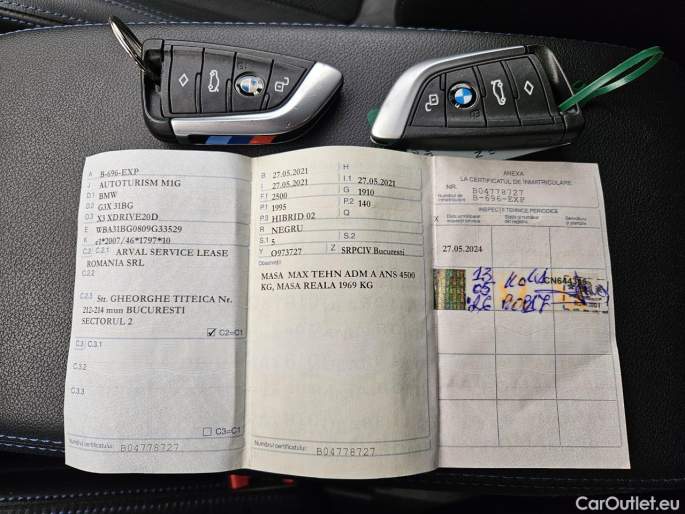 A B-696-EXP
J AUTOTURISM M1G
D.1 BMW
D.2 G3X 31BG
D.3 X3 XDRIVE20D
E WBA31BG0809G33529
K e1*2007/46*1797*10
C.2 C.2.1 ARVAL SERVICE LEASE
ROMANIA SRL
C.2.2
C.2.3 Str. GHEORGHE TITEICA Nr.
212-214 mun BUCURESTI
SECTORUL 2
C2=C1
C.3 C.3.1
C.3.2
C.3.3
C3=C1
Numărul certificatului: B04778727
B 27.05.2021
H
I 27.05.2021
I.1 27.05.2021
F.1 2500
G 1910
P.1 1995
P.2 140
P.3 HIBRID 02
Q
R NEGRU
S.1 5
S.2
Y O973727
Z SRPCIV.Bucuresti
Observații
MASA MAX TEHN ADM A ANS 4500
KG, MASA REALA 1969 KG
Numărul certificatului: B04778727
ANEXA
LA CERTIFICATUL DE ÎNMATRICULARE
NR. B04778727
Număr de înmatriculare B-696-EXP
INSPECȚII TEHNICE PERIODICE
X
27.05.2024
13
05
'26
BMW
BMW
CarOutlet.eu